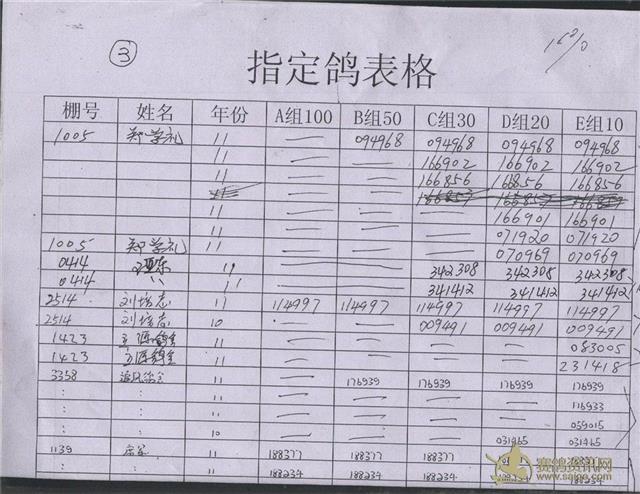 ③
1600
指定鸽表格
棚号 姓名 年份 A组100 B组50 C组30 D组20 E组10
1005 郑学礼 11 — 094968 094968 094968 094968
11 — — 166902 166902 166902
11 — — 166856 166856 166856
11 — — 166857 166857 166857
11 — — — 166901 166901
11 — — — 071920 071920
1005 郑学礼 11 — — — 070969 070969
0414 11 — — 342308 342308 342308
0414 〃 — — 341412 341412 341412
2514 刘培志 11 114997 114997 114997 114997 114997
2514 刘培志 10 — — 009491 009491 009491
1423 11 — — — — 083005
1423 11 — — — — 231418
3358 11 — 176939 176939 176939 176939
: : 11 — — — — 176933
: : 11 — — — — 059015
: : 10 — — — 031465 031465
1139 11 188377 188377 188377 188377 188377
: : 11 188234 188234 188234 188234 188234
赛鸽资讯网
www.saige.com